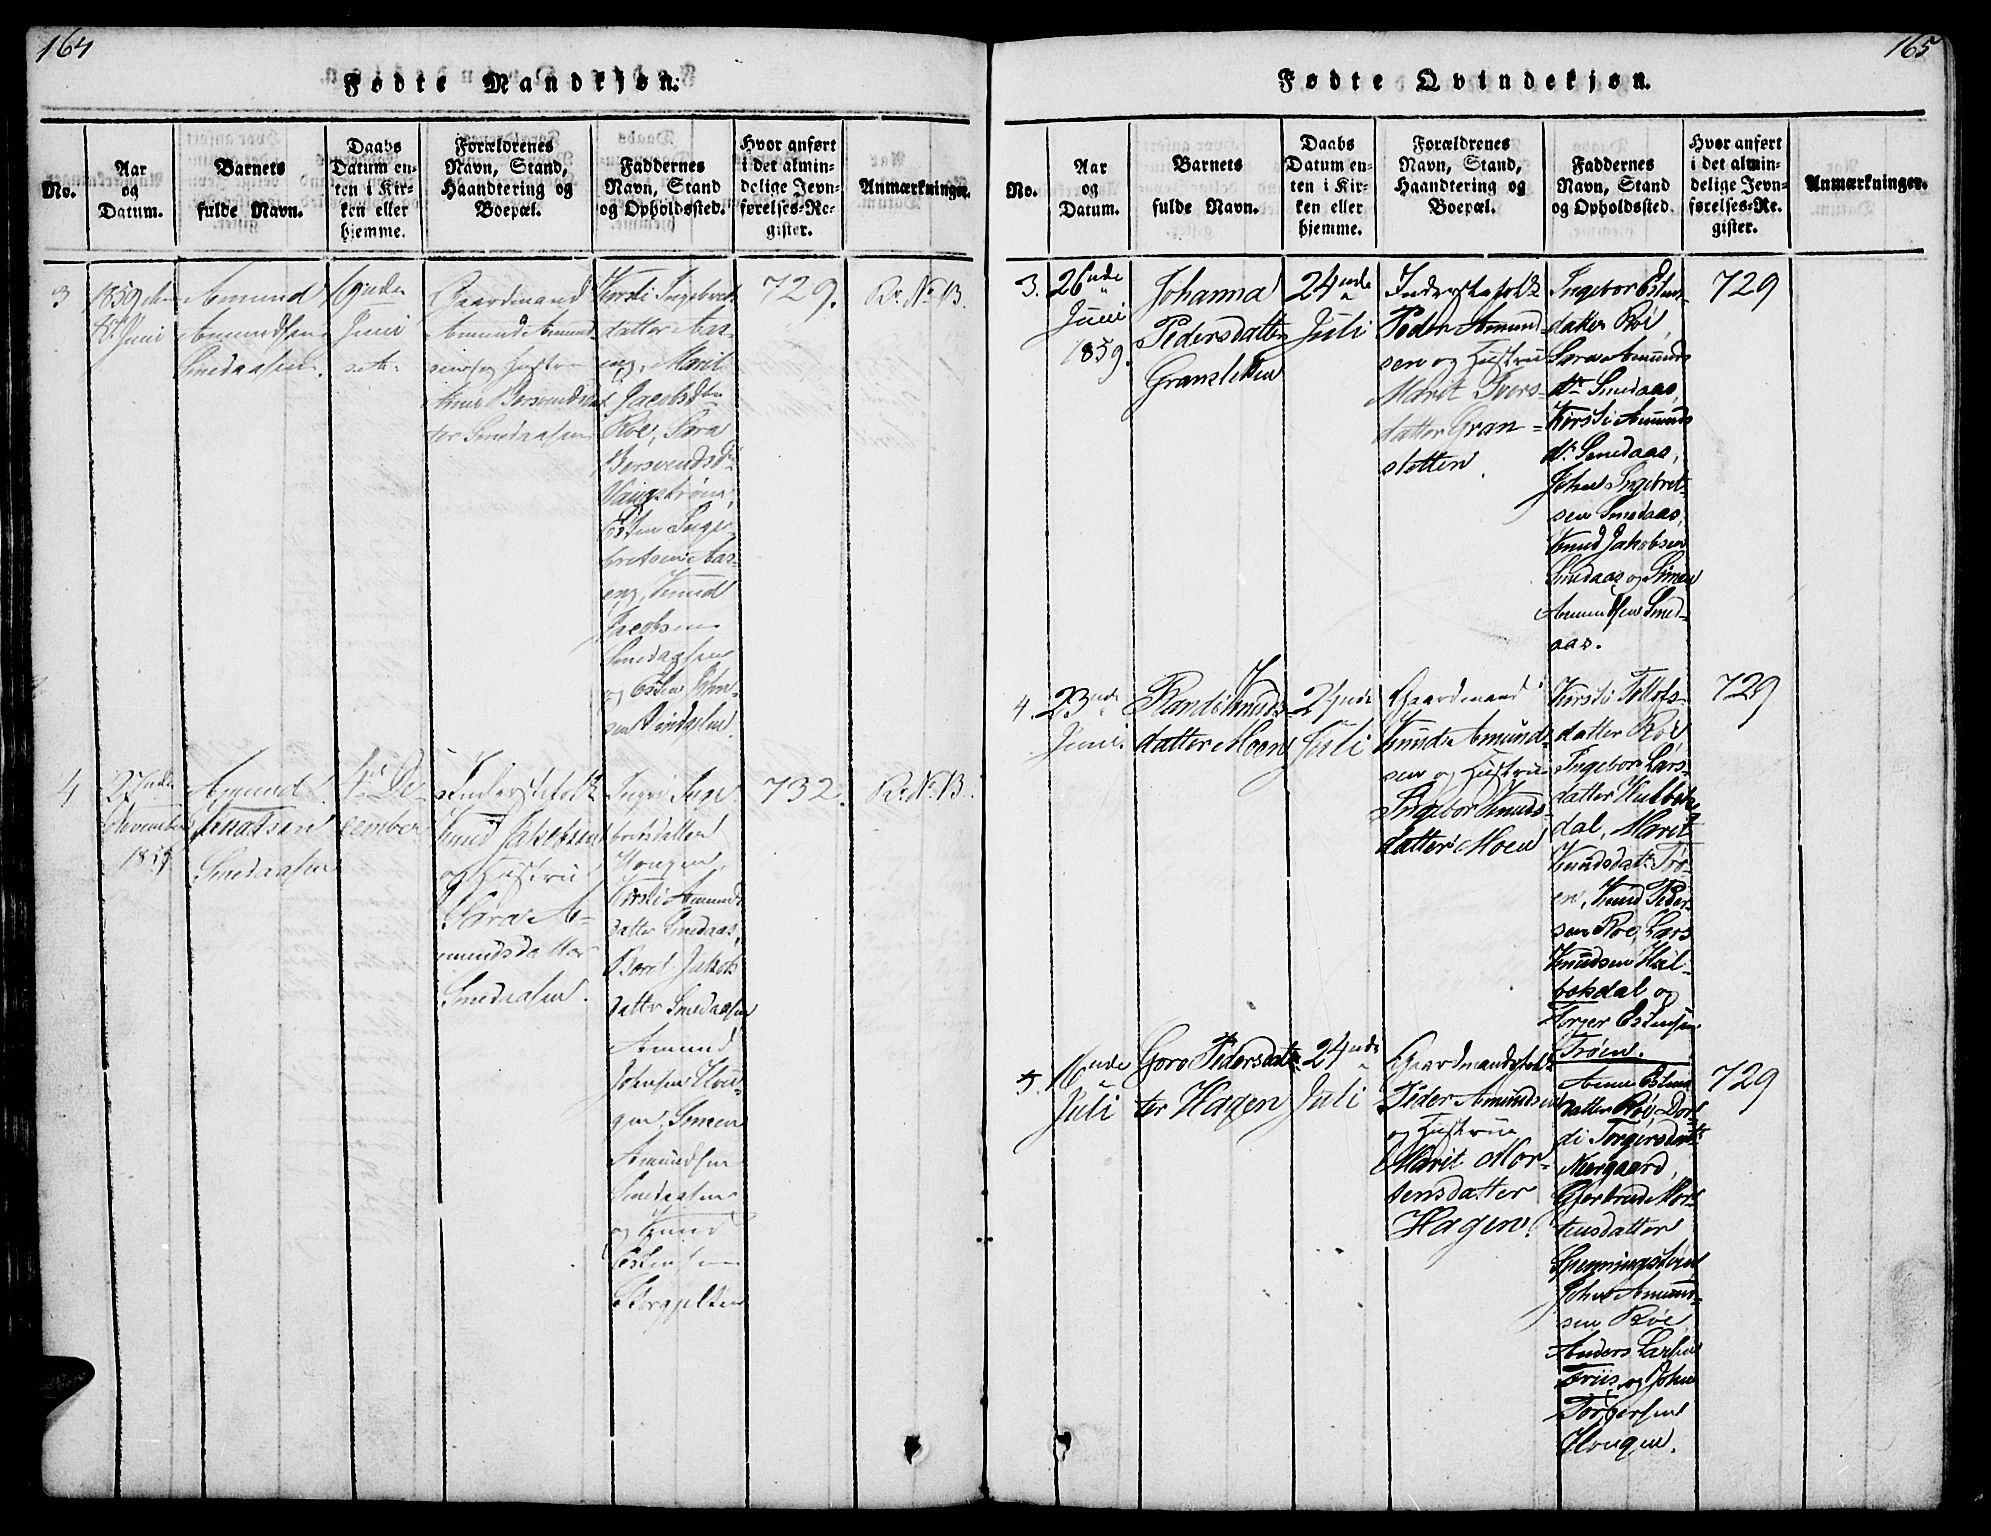 164
Fødte Mandkjøn.
No.
Aar
og
Datum.
Barnets
fulde Navn.
Daabs
Datum en-
ten i Kir-
ken eller
hjemme.
Forældrenes
Navn, Stand,
Haandtering og
Boepæl.
Faddernes
Navn, Stand
og Opholdssted.
Hvor anført
i det almin-
delige Jevn-
førelses-Re-
gister.
Anmærkninger.
3
1859 den
Juni
Amund
Amundsen
Smedaasen.
19nde
Juni
Gaardmand
Amund Amund-
sen og Hustru
Anne Bersvendsdat-
ter Smedaasen
Kersti Ingebret-
datter Aas-
eng, Marit
Jacobsdtr
Roe, Sara
Bersvendsdr
Vangstrøen,
Esten Inge-
bretsen Aas-
eng, Knud
Jacobsen
Smedaasen
og Esten
729.
Br. No. 13
4
27nde
November
1859
Amund
Knutsen
Smedaasen
4de De-
cember
Inderstefolk
Knud Jakobsen
og Hustru
Sara A-
mundsdatter
Smedaasen.
Ingri Inge-
brigtsdatter
Hougen,
Kersti Amunds-
datter Smedaas,
Beret Jakobs-
datter Smedaasen
Amund
Johnsen Hou-
gen, Simen
Amundsen
Smedaasen
og Knud
Estensen
732.
Br. No. 13.
165
Fødte Qvindekjøn.
No.
Aar
og
Datum.
Barnets
fulde Navn.
Daabs
Datum en-
ten i Kir-
ken eller
hjemme.
Forældrenes
Navn, Stand,
Haandtering og
Boepæl.
Faddernes
Navn, Stand
og Opholdssted.
Hvor anført
i det almin-
delige Jevn-
førelses-Re-
gister.
Anmærkninger.
3.
26nde
Juni
1859.
Johanna
Pedersdatter
Gransletten
24nde
Juli
Inderstefolk
Peder Amund-
sen og Hustru
Marit Ivers-
datter Gran-
sletten.
Ingebor Estens-
datter Roe,
Sara Amunds
dr. Smedaas,
Kersti Amunds
dr. Smedaas,
John Ingebret-
sen Smedaas,
Knud Jakobsen
Smedaas og Simen
Amundsen Smed-
aas.
729
4.
23nde
Juni.
Randi Knuds-
datter Moen
24nde
Juli
Gaardmand
Knud Amund-
sen og Hustru
Ingebor Knuds-
datter Moen
Kersti Tollefs-
datter Roe
Ingebor Lars-
datter
dal, Marit
Knudsdatr. Trø-
en, Knud Peder-
sen Roe, Lars
Knudsen Hul-
bækdal og
Torger Estensen
Trøen.
729
5.
16nde
Juli
Goro Pedersdat-
ter Hagen
24nde
Juli
Gaardmandsfolk
Peder Amundsen
og Hustrue
Marit Mor-
tensdatter
Hagen.
Anne Estens-
datter Roe, Dor-
di Torgersdatr
Nærgaard,
Gjertrud Mor-
tensdatter
John Amund-
sen Roe,
Anders Larsen
Friis, og John
Torgersen
Hougen.
729